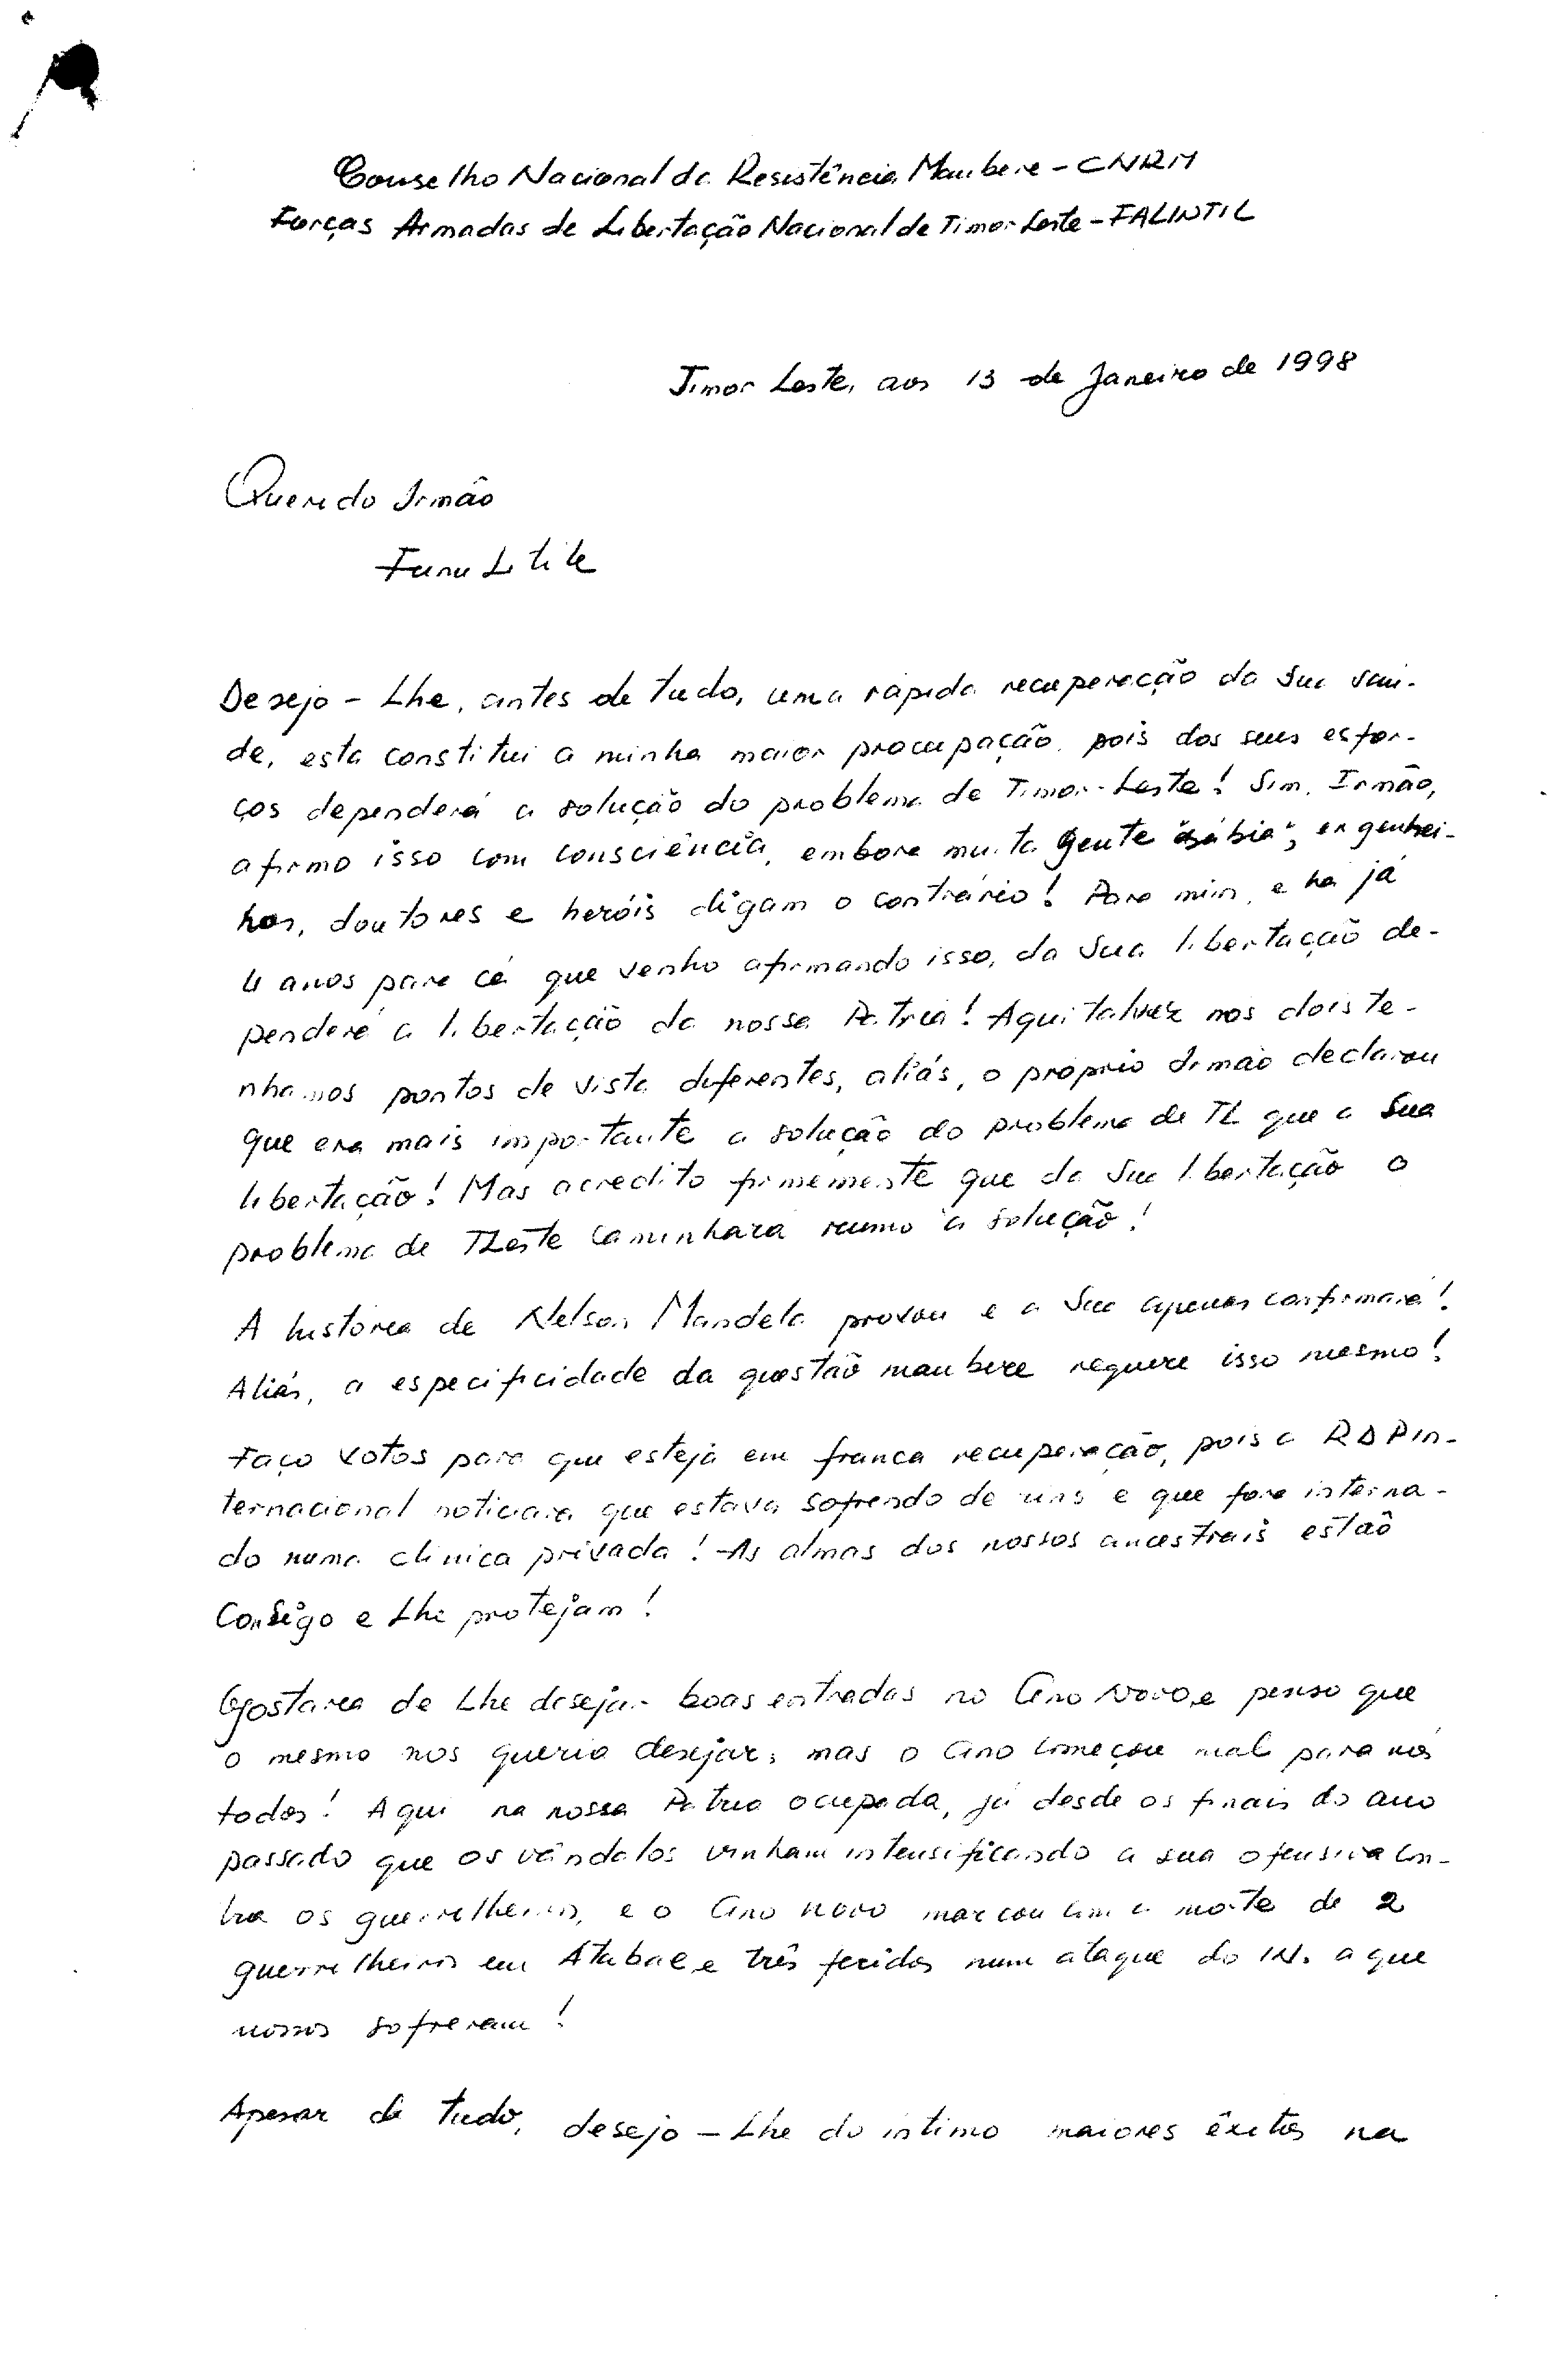 Conselho Nacional da Resistência Maubere - CNRM
Forças Armadas de Libertação Nacional de Timor Leste - FALINTIL
Timor Leste, aos 13 de Janeiro de 1998
Querido Irmão
Funu
Desejo - Lhe, antes de tudo, uma rápida recuperação da Sua saú-
de, esta constitui a minha maior preocupação, pois dos seus esfor-
ços dependerá a solução do problema de Timor-Leste! Sim, Irmão,
afirmo isso com consciência, embora muita gente "sábia", engenhei-
ros, doutores e heróis digam o contrário! Para mim, e há já
4 anos para cá que venho afirmando isso, da Sua libertação de-
penderá a libertação da nossa Pátria! Aqui talvez nos dois te-
nhamos pontos de vista diferentes, aliás, o próprio Irmão declarou
que era mais importante a solução do problema de TL que a Sua
libertação! Mas acredito firmemente que da Sua libertação o
problema de TLeste caminhará rumo à solução!
A história de Nelson Mandela provou e a Sua apenas confirmará!
Aliás, a especificidade da questão maubere requere isso mesmo!
Faço votos para que esteja em franca recuperação, pois a RDP in-
ternacional noticiara que estava sofrendo de rins e que fora interna-
do numa clínica privada! As almas dos nossos ancestrais estão
Consigo e Lhe protejam!
Gostaria de Lhe desejar boas entradas no Ano Novo, e penso que
o mesmo nos queria desejar, mas o Ano começou mal para nós
todos! Aqui na nossa Pátria ocupada, já desde os finais do ano
passado que os vândalos vinham intensificando a sua ofensiva con-
tra os guerrilheiros, e o Ano novo marcou com a morte de 2
guerrilheiros em Atabae, e três feridos num ataque do IN. a que
nossos sofreram!
Apesar de tudo, desejo - Lhe do íntimo maiores êxitos na